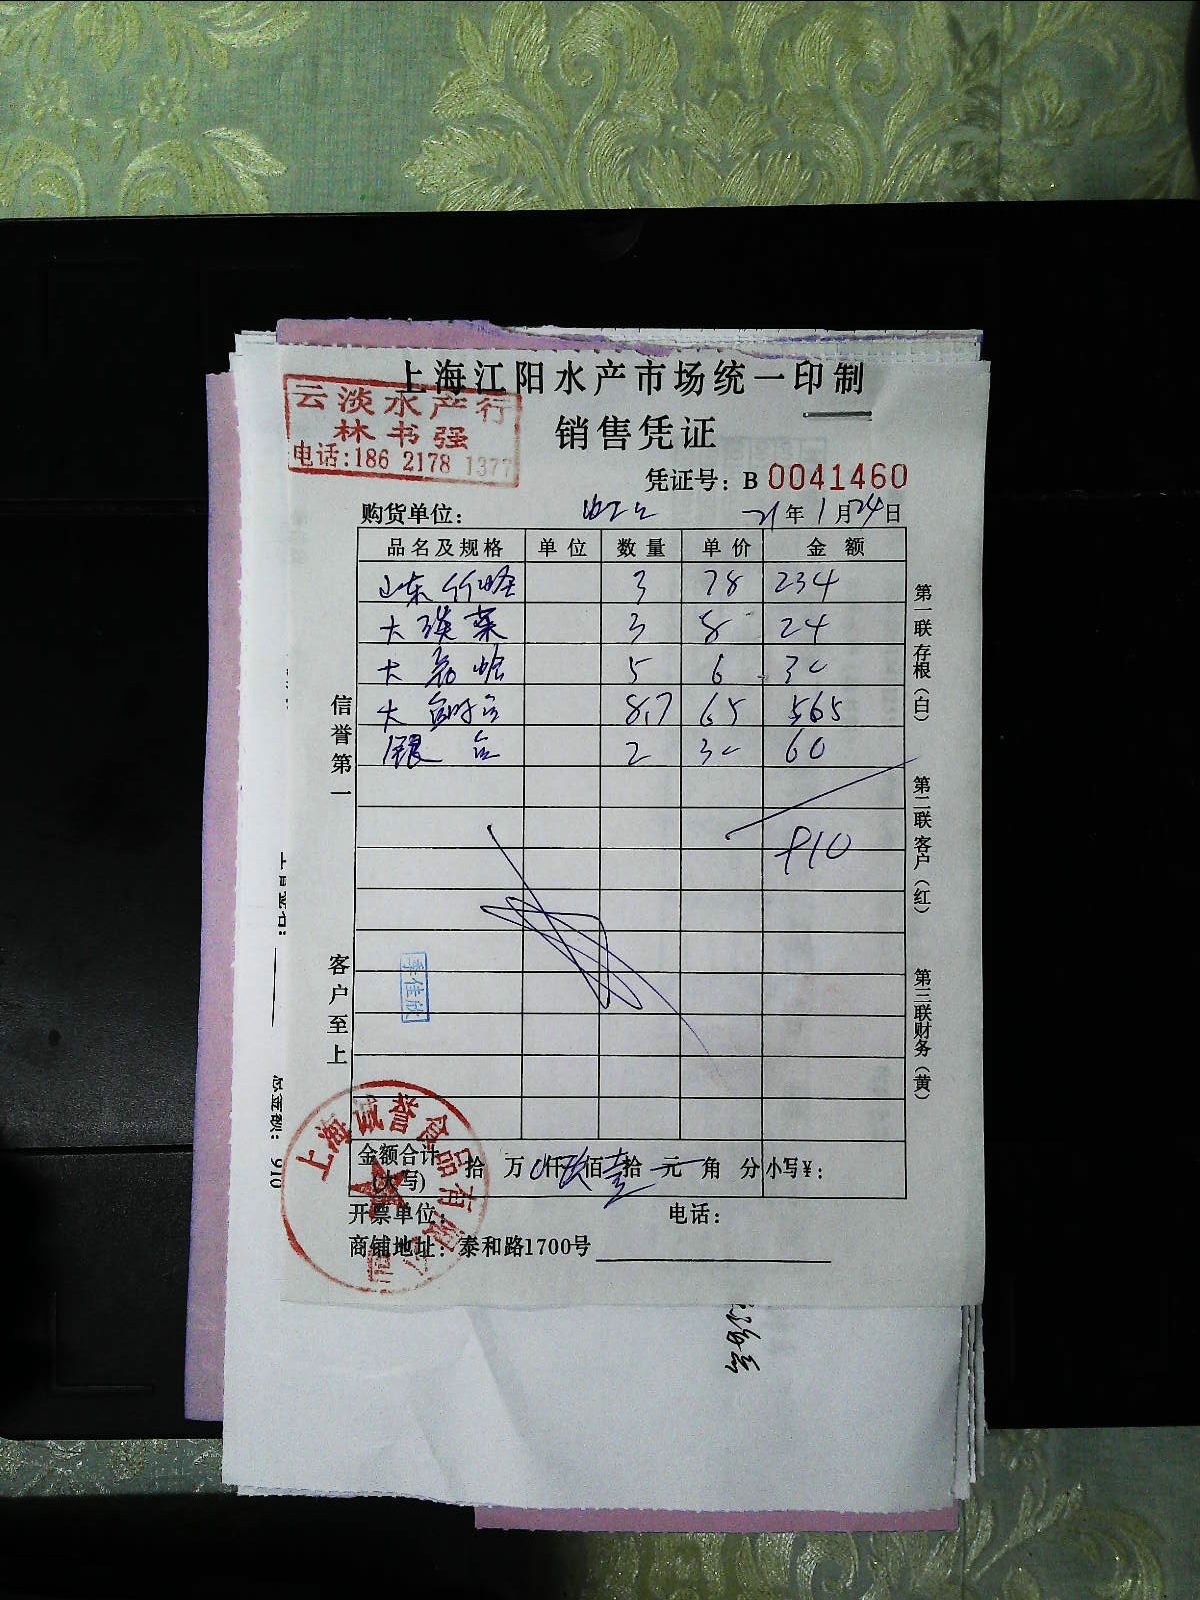 上海江阳水产市场统一印制
云淡水产行
林书强
电话:186 2178 1377
销售凭证
凭证号: B 0041460
购货单位:
21年1月24日
品名及规格 单位 数量 单价 金额
山东竹蛏 3 78 234
大 菜 3 8 24
大 蛤 5 6 30
大 8.7 65 565
银 2 30 60
910
信誉第一
客户至上
第一联存根(白)
第二联客户(红)
第三联财务(黄)
李佳欣
上海诚誉食品有限
金额合计(大写) 拾 万 仟 玖 佰 壹 拾 元 角 分 小写¥:
开票单位:
电话:
商铺地址: 泰和路1700号
910